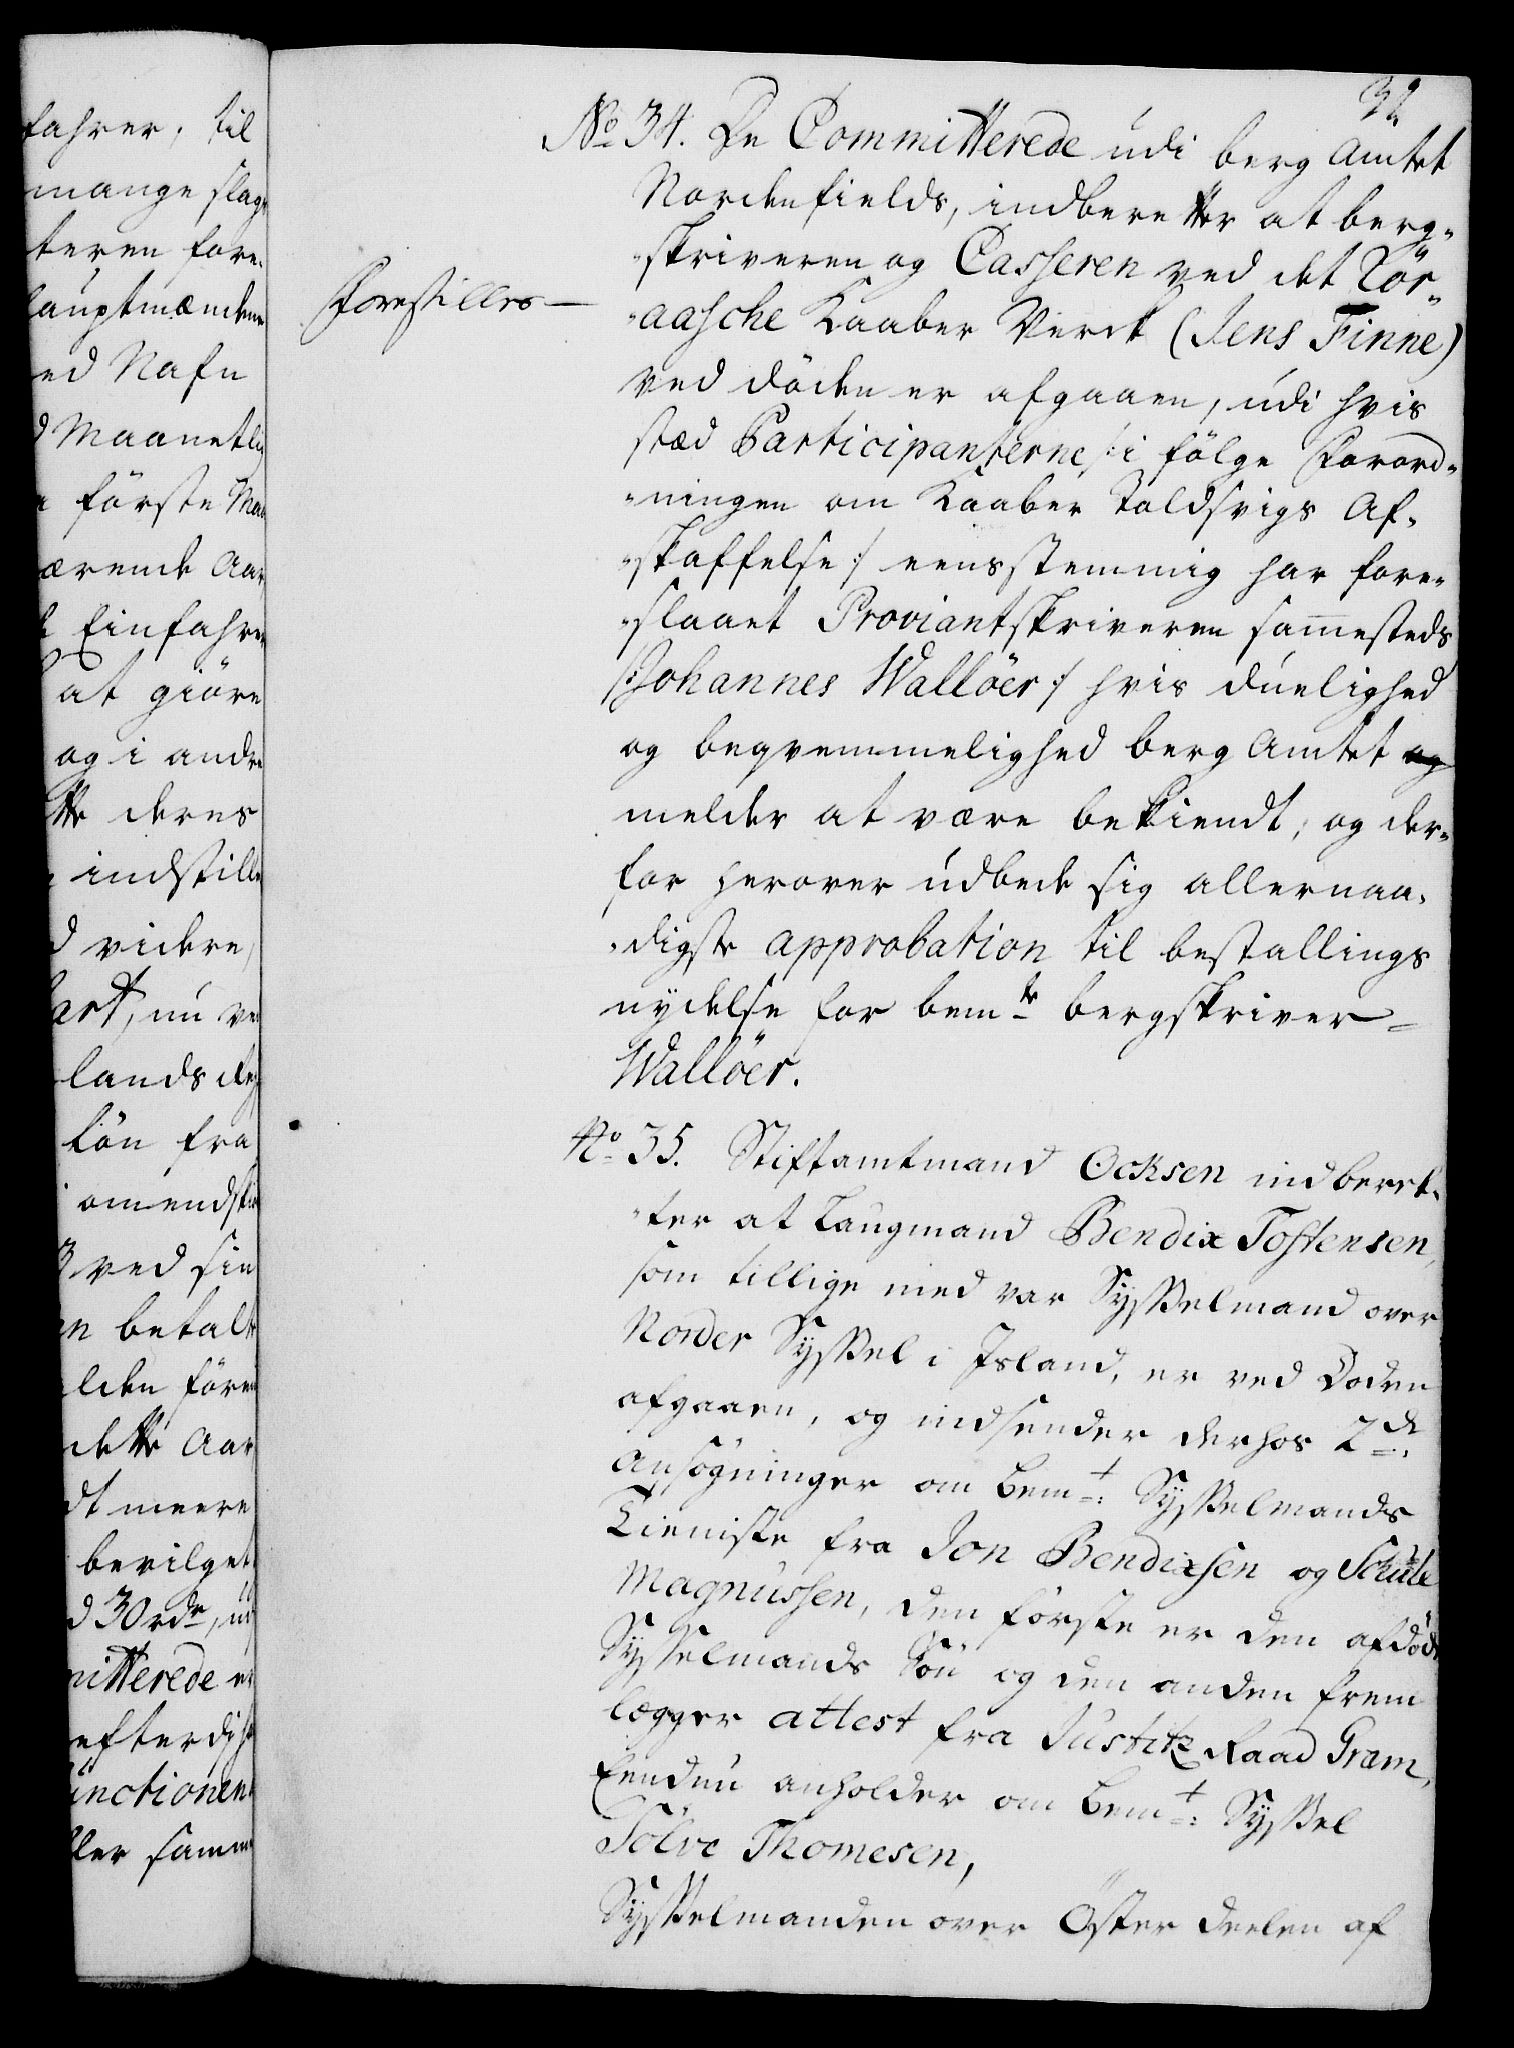 fahrer, til
mange slags
teren fore¬
lauptmændene
ed Nafn
d Maanetlig
första Maa
ærende Aar
Einfahrer
at giöre
og i andre
tte deres
indstille
d videre,
art, nu ve
lands
Lön fra
omendskiø
3 ved sin
en betalt
lden fören
dette Aar
dt meere
bevilget
d 30 rdr, ud
mitterede er
efterdi
unctionen
ller samme
32
No 34. De Committerede udi berg Amtet
Nordenfields, indberetter at berg¬
Forestilles —
skriveren og Casseren ved det Rör¬
aasche Kaaber Verck (Jens Finne)
ved döden er afgaaen, udi hvis
stæd Participanterne /: i fölge Forord¬
ningen om Kaaber Toldsvigs Af¬
skaffelse :/ eensstemmig har fore¬
slaaet Proviantskriveren sam̅esteds
/: Johannes Wallöer :/ hvis duelighed
og beqvemmelighed berg Amtet og
melder at være bekiendt, og der¬
for herover udbede sig allernaa¬
digste approbation til bestallings
nydelse for bemte bergskriver
Wallöer.
No 35. Stiftamtmand Ocksen indberet¬
ter at Laugmand Bendix Tostensen,
som tillige med var Sysselmand over
Norder Syssel i Island, er ved Döden
afgaaen, og indsender derhos 2de
ansögninger om bemt: Sysselmands
Tieniste fra Jon Bendixsen og Schule
Magnussen, den förste er den afdöde
Sysselmands Sön og den anden frem
lægger attest fra Justitz Raad Gram,
Eendnu anholder om bemt: Syssel
Sölve Thomesen,
Sysselmanden over Öster Deelen af